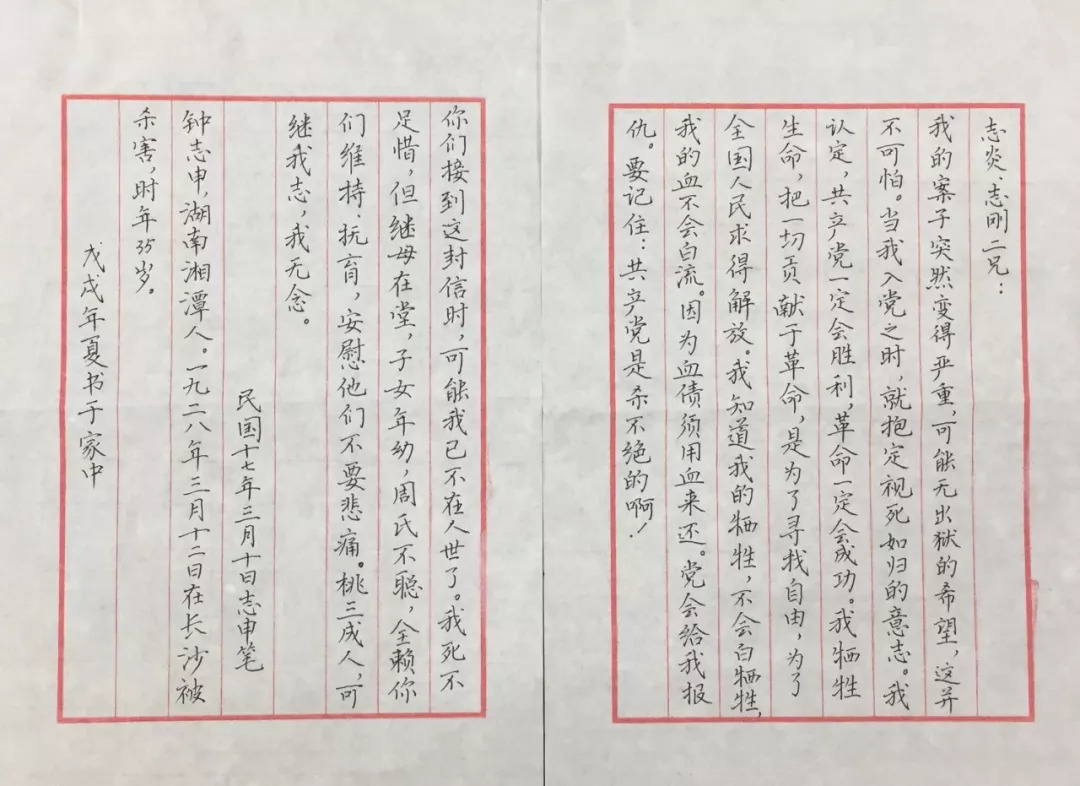 志炎、志刚二兄：
我的案子突然变得严重，可能无出狱的希望，这并
不可怕。当我入党之时，就抱定视死如归的意志。我
认定，共产党一定会胜利，革命一定会成功。我牺牲
生命，把一切贡献于革命，是为了寻找自由，为了
全国人民求得解放。我知道我的牺牲，不会白牺牲，
我的血不会白流。因为血债须用血来还。党会给我报
仇。要记住：共产党是杀不绝的啊！
你们接到这封信时，可能我已不在人世了。我死不
足惜，但继母在堂，子女年幼，周氏不聪，全赖你
们维持、抚育，安慰他们不要悲痛。桃三成人，可
继我志，我无念。
民国十七年三月十日志申笔
钟志申，湖南湘潭人。一九二八年三月十二日在长沙被
杀害，时年35岁。
戊戌年夏书于家中